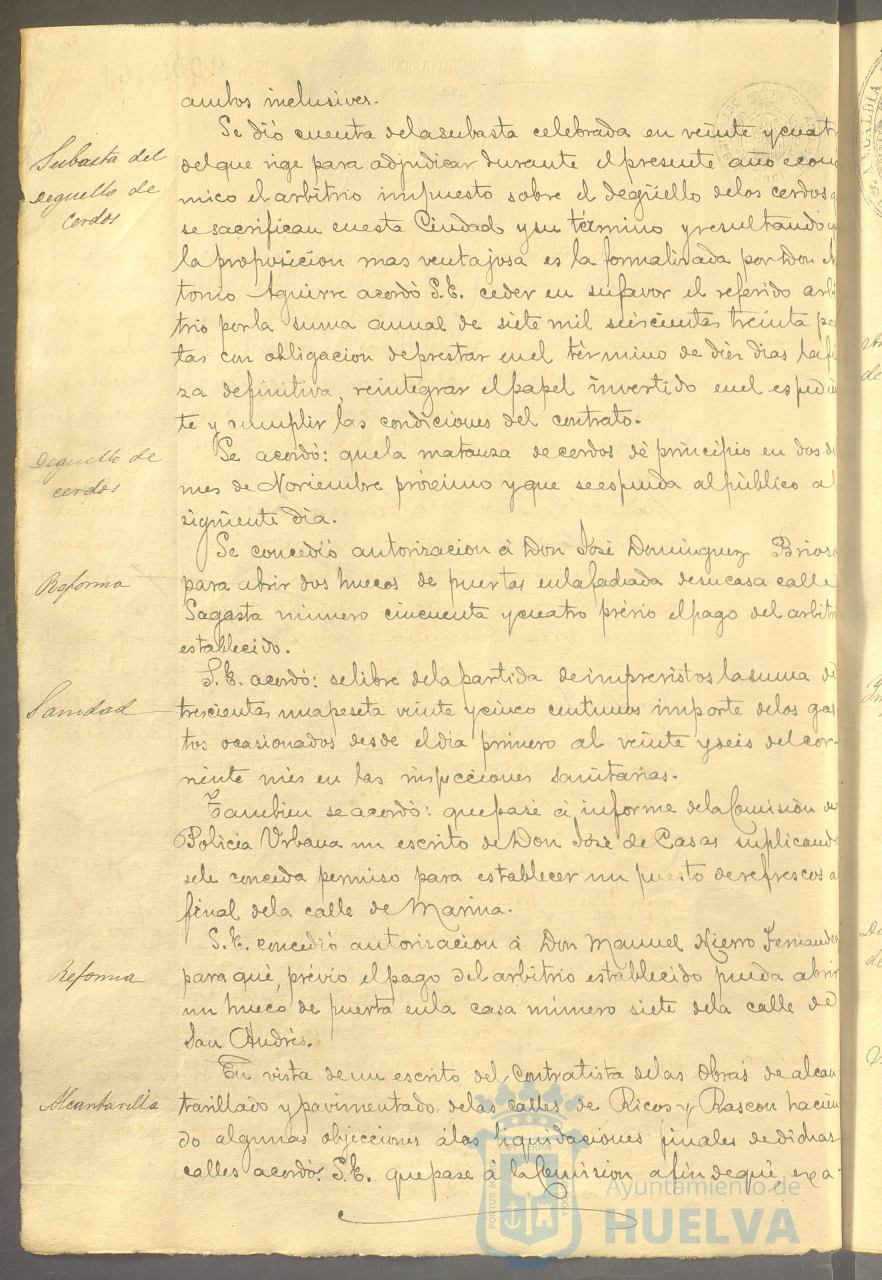 ambos inclusives.
Se dió cuenta dela subasta celebrada en veinte y cuatr
Subasta del
deguello de
cerdos
del que rige para adjudicar durante el presente año econo
mico el arbitrio impuesto sobre el degüello delos cerdos q
se sacrifican en esta Ciudad y su término y resultando q
la proposicion mas ventajosa es la formalizada por Don A
tonio Aguirre acordó S.E. ceder en su favor el referido arbi
trio por la suma annal de siete mil seiscientas treinta pe
tas con obligacion de prestar en el término de diez dias la fi
za definitiva, reintegrar el papel invertido en el espedie
te y cumplir las condiciones del contrato.
Deguello de
cerdos
Se acordó: que la matanza de cerdos dé principio en dos de
mes de Noviembre próximo y que se espenda al público al
siguiente dia.
Reforma
Se concedió autorizacion á Don José Dominguez Brioso
para abrir dos huecos de puertas en la fachada de su casa calle
Sagasta número cincuenta y cuatro prévio el pago del arbitri
establecido.
Sanidad
S.E. acordó: se libre de la partida de imprevistos la suma de
trescientas una peseta veinte y cinco centimos importe delos gas
tos ocasionados desde el dia primero al veinte y seis del cor-
riente mes en las inspecciones sanitarias.
Tambien se acordó: que pase á informe dela Comisión de
Policia Urbana un escrito de Don José de Casas suplicando
se le conceda permiso para establecer un puesto de refrescos a
final dela calle de Marina.
Reforma
S.E. concedió autorizacion á Don Manuel Hierro Fernandez
para qué, prévio el pago del arbitrio establecido pueda abrir
un hueco de puerta en la casa número siete dela calle de
San Andrés.
Alcantarilla
En vista de un escrito del contratista delas obras de alcan
tarillado y pavimentado delas calles de Ricos y Rascon hacien
do algunas objecciones á las liquidaciones finales de dichas
calles acordó S.E. que pase á la Comision a fin de qué, exa-
Ayuntamiento de
HUELVA
PORTUS MARIS